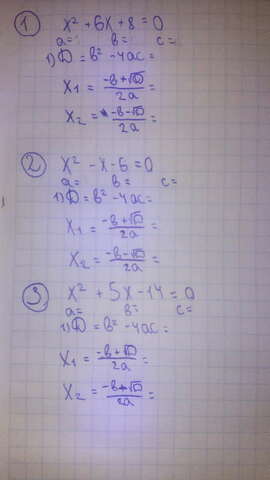 1 x² + 6x + 8 = 0
a = в = c =
1) D = в² - 4ac =
x₁ = (-в + √D) / 2a =
x₂ = (-в - √D) / 2a =
2 x² - x - 6 = 0
a = в = c =
1) D = в² - 4ac =
x₁ = (-в + √D) / 2a =
x₂ = (-в - √D) / 2a =
3 x² + 5x - 14 = 0
a = в = c =
1) D = в² - 4ac =
x₁ = (-в + √D) / 2a =
x₂ = (-в - √D) / 2a =